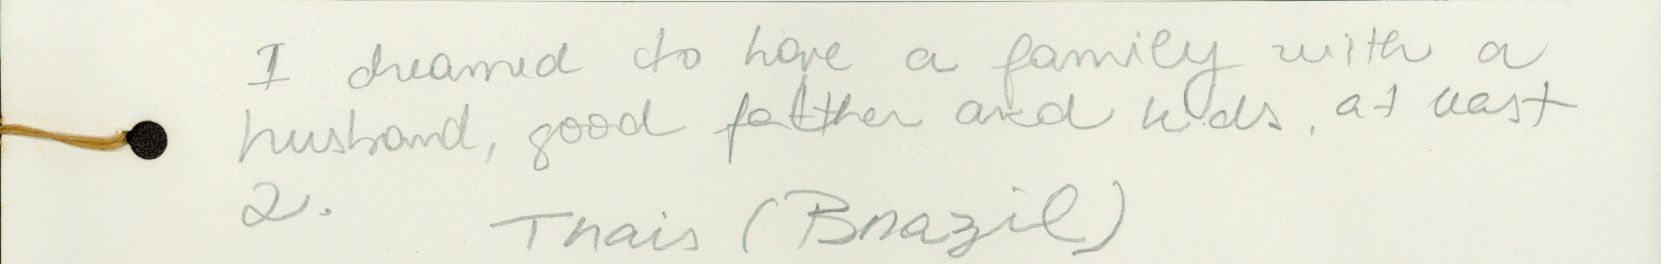 I dreamed to have a family with a
husband, good fatther and kids, at least
2.
Thais (Brazil)